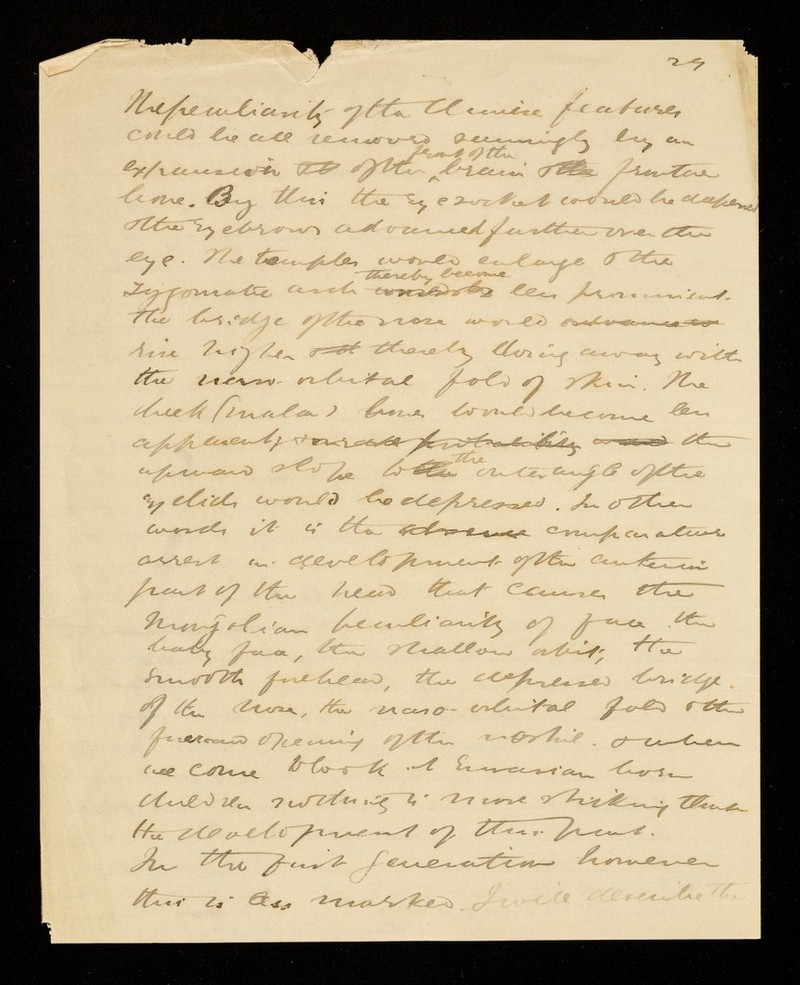 29
The peculiarity of the Chinese features
could be all removed seemingly by an
front of the
expansion of the brain & the frontal
bone. By this the eye socket would be deepened
& the eyebrows advanced further over the
eye. The temples would enlarge & the
thereby become
zygomatic arch would be less prominent.
The bridge of the nose would advance &
rise higher & thereby doing away with
the naso-orbital fold of skin. The
cheek (malar) bones would become less
apparently and the
the
upward slope to the outer angle of the
eyelids would be depressed. In other
words it is the absence comparative
arrest in development of the anterior
part of the head that causes the
Mongolian peculiarity of face. the
baby face, the shallow orbit, the
smooth forehead, the depressed bridge
of the nose, the naso-orbital fold & the
forward opening of the nostril. & when
we come to look at Eurasian born
children nothing is more striking than
the development of this part.
In the first generation however
this is less marked. I will describe the